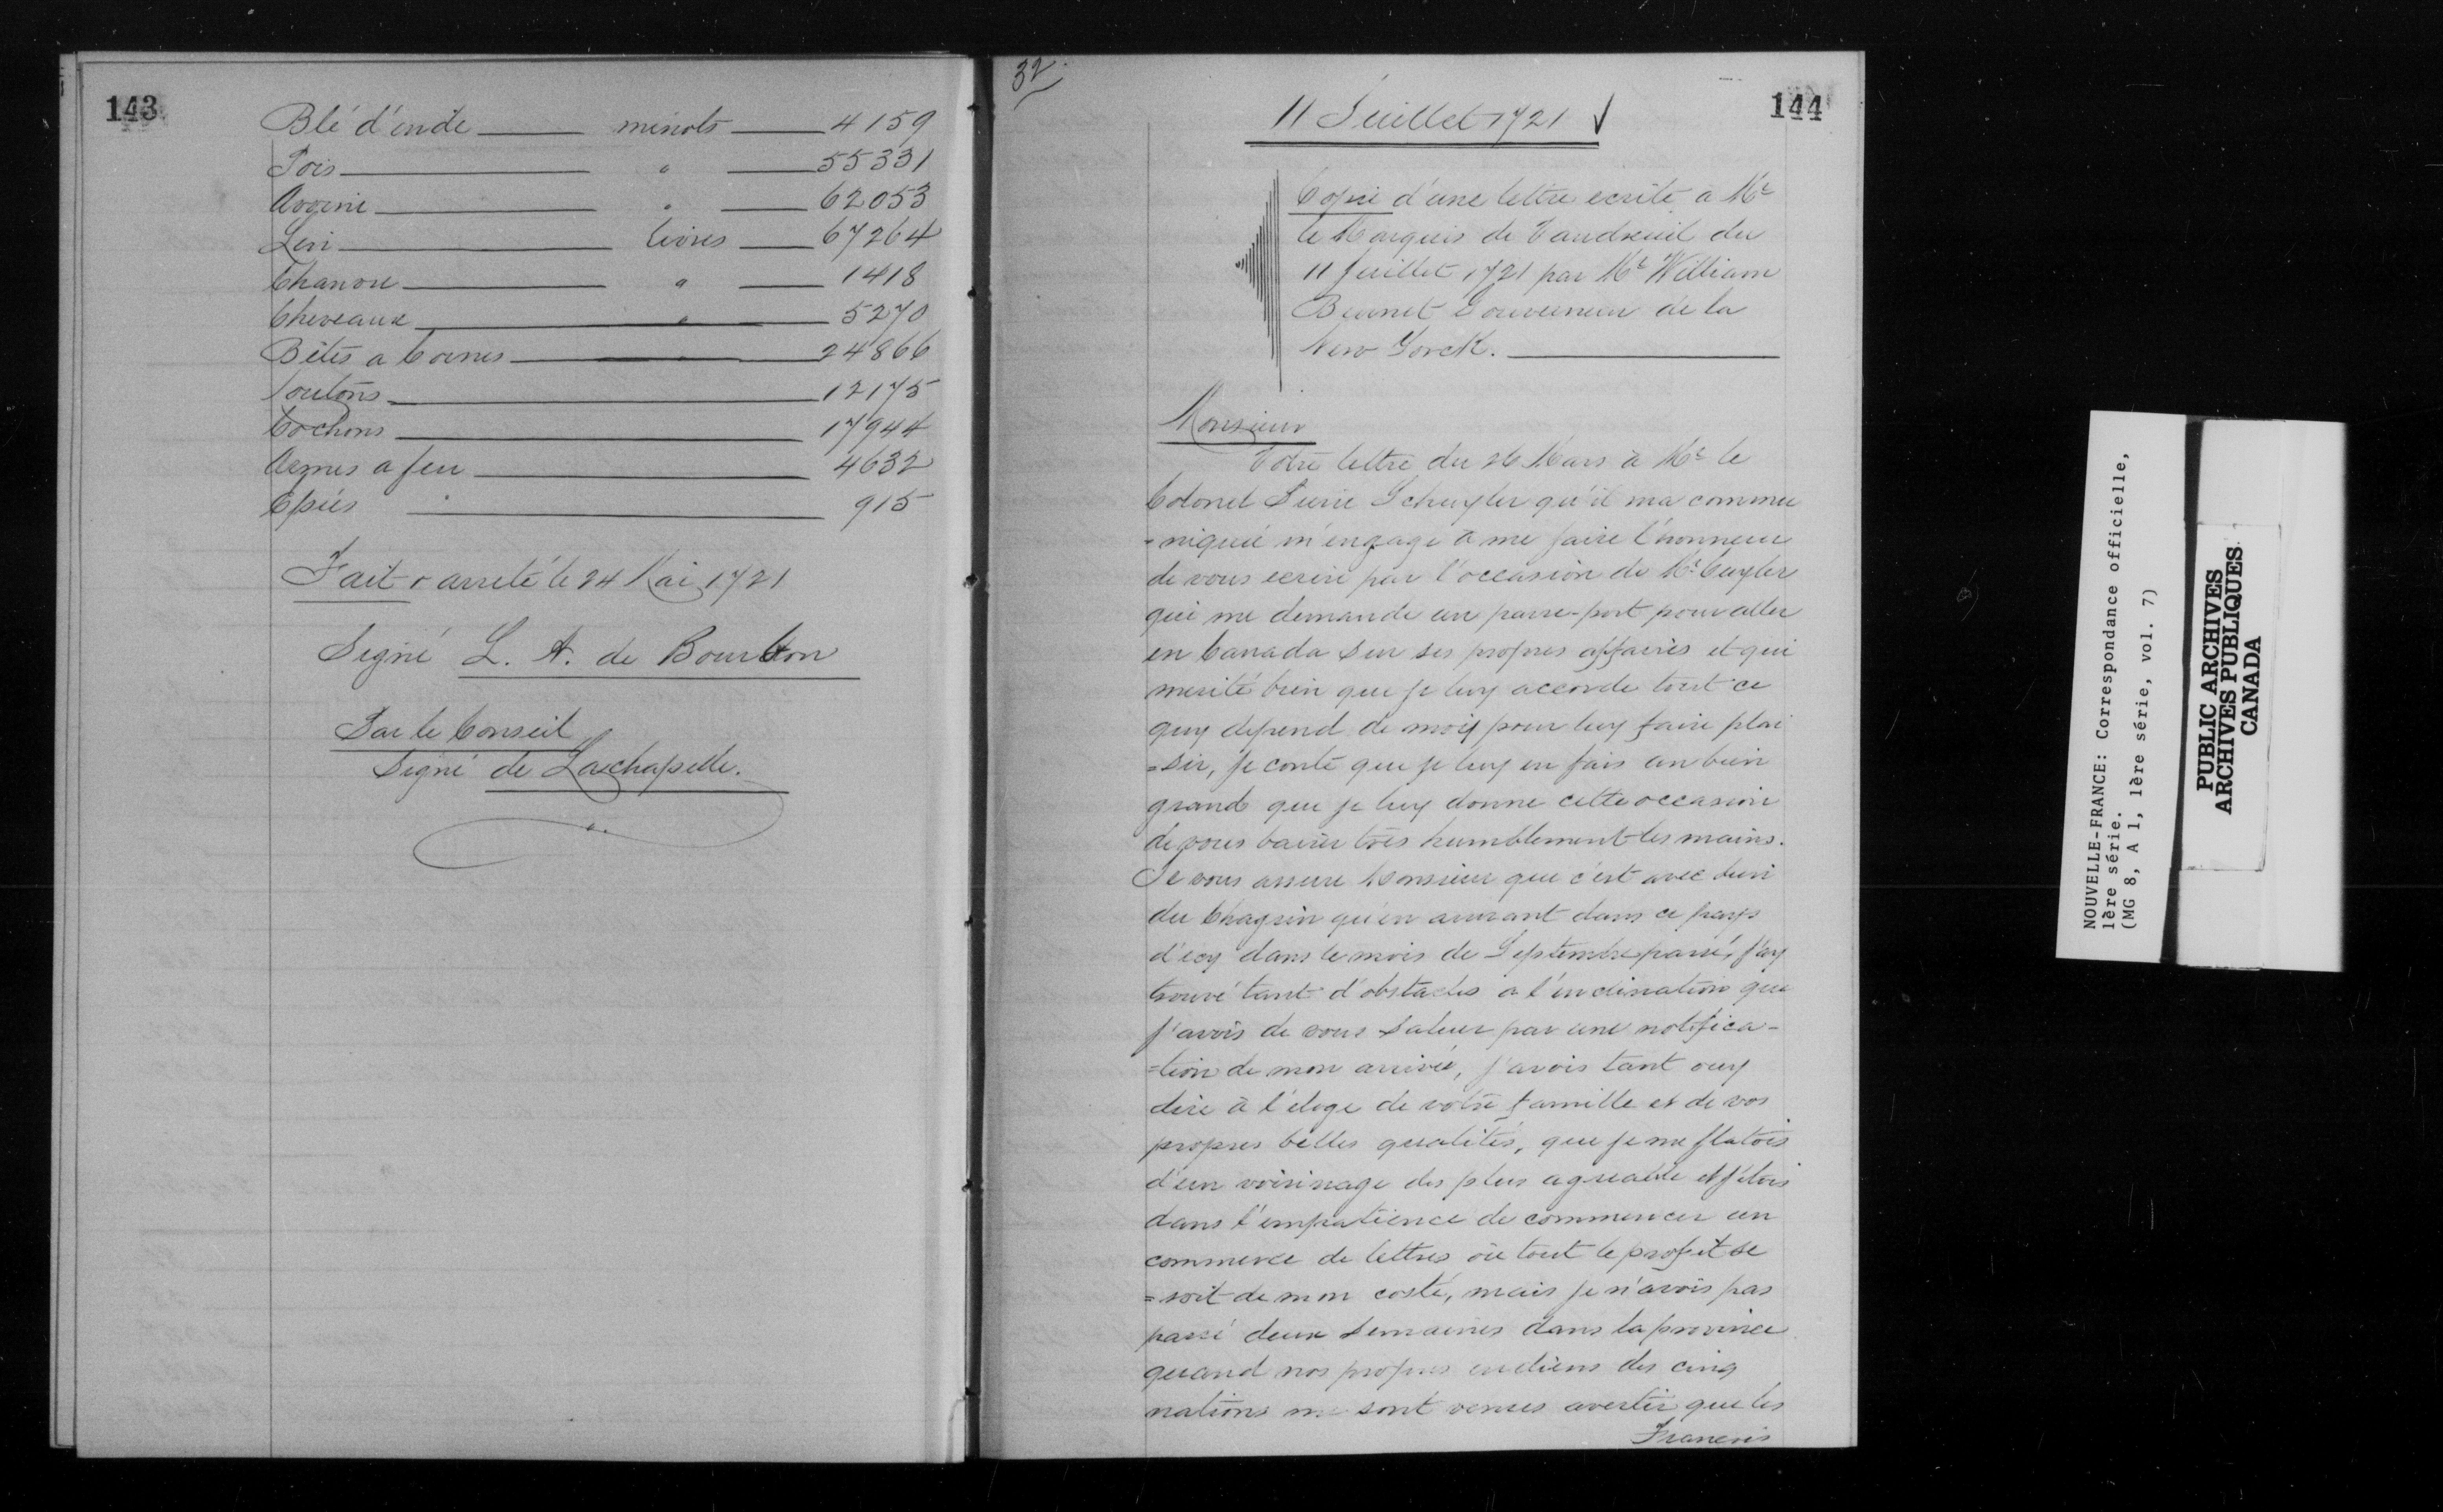 143
Blé d'inde — minots — 4159
Pois — " — 55331
Avoine — " — 62053
Lin — livres — 67264
Chanvre — " — 1418
Cheveaux — " — 5270
Bêtes a Cornes — " — 24866
Moutons — 12175
Cochons — 17944
Armes a feu — 4632
Epées — 915
Fait & arreté le 24 Mai 1721
Signé L. A. de Bourbon
Par le Conseil
Signé de Lachapelle.
32
144
11 Juillet 1721
Copie d'une lettre ecrite à Mr
le Marquis de Vaudreuil du
11 Juillet 1721 par Mr William
Burnet Gouverneur de la
New Yorck.
Monsieur
Votre lettre du 26 Mars à Mr le
Colonel Pierre Schuyler qu'il ma commu
-niquée m'engage à me faire l'honneur
de vous ecrire par l'occasion de Mr Cuyler
qui me demande un passe-port pour aller
en Canada sur ses propres affaires et qui
merite bien que je luy accorde tout ce
quy depend de moy pour luy faire plai
=sir, je conte que je luy en fais un bien
grand que je luy donne cette occasion
de vous baiser très humblement les mains.
Je vous assure Monsieur que c'est avec bien
du Chagrin qu'en arrivant dans ce pays
d'icy dans le mois de Septembre passé, j'ay
trouvé tant d'obstacles a l'inclination que
j'avois de vous saluer par une notifica-
=tion de mon arrivée, j'avois tant ouy
dire à l'eloge de votre famille et de vos
propres belles qualités, que je me flatois
d'un voisinage des plus agreable et j'etois
dans l'impatience de commencer un
commerce de lettres où tout le profit se
=roit de mon costé, mais je n'avois pas
passé deux semaines dans la province
quand nos propres indiens des cinq
nations me sont venus avertir que les
Francois
NOUVELLE-FRANCE: Correspondance officielle,
1ère série.
(MG 8, A 1, 1ère série, vol. 7)
PUBLIC ARCHIVES
ARCHIVES PUBLIQUES
CANADA